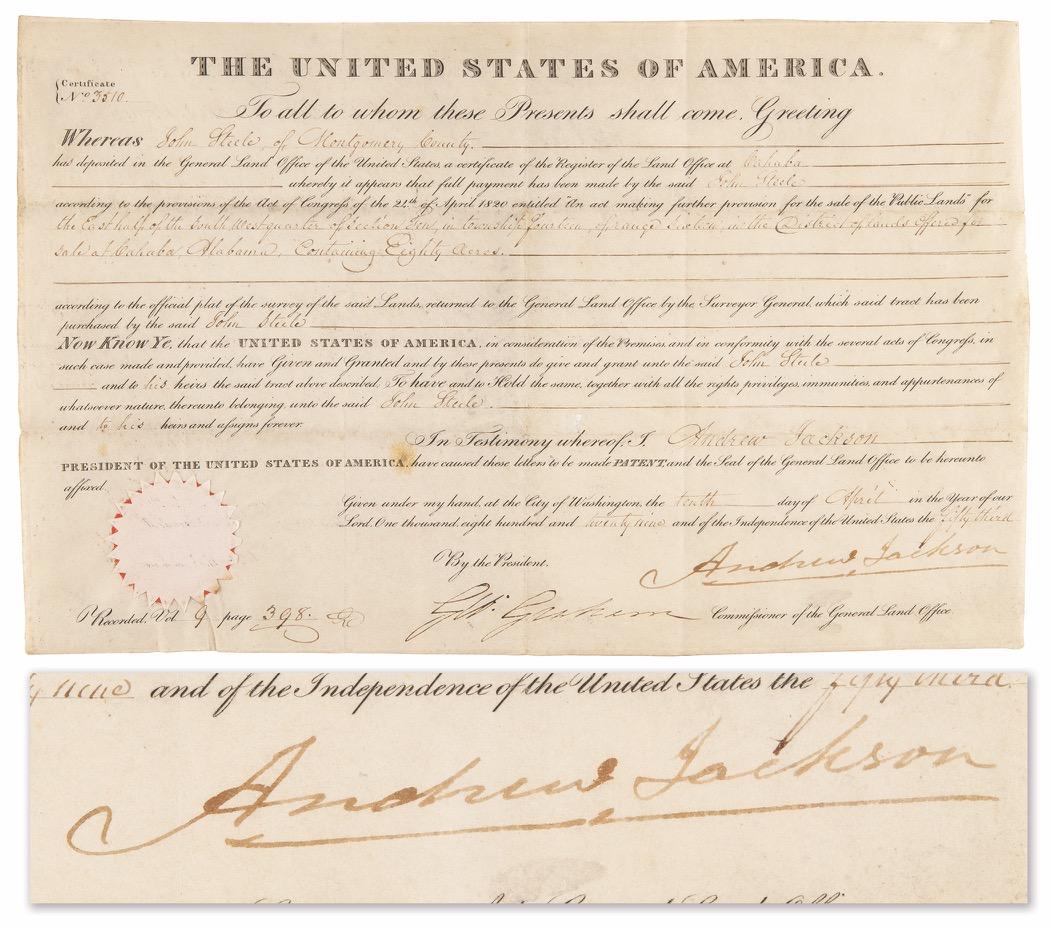 THE UNITED STATES OF AMERICA.
Certificate
No. 3510.
To all to whom these Presents shall come, Greeting
Whereas John Steele, of Montgomery County.
has deposited in the General Land Office of the United States, a certificate of the Register of the Land Office at Cahaba
whereby it appears that full payment has been made by the said John Steele
according to the provisions of the Act of Congress of the 24th of April 1820 entitled "An act making further provision for the sale of the Public Lands" for
the East half of the South West quarter of Section Ten, in township fourteen, of range Sixteen, in the District of Lands Offered for
sale at Cahaba, Alabama, Containing Eighty Acres.
according to the official plat of the survey of the said Lands, returned to the General Land Office by the Surveyor General, which said tract has been
purchased by the said John Steele
Now Know Ye, that the UNITED STATES OF AMERICA, in consideration of the Premises, and in conformity with the several acts of Congress, in
such case made and provided, have Given and Granted and by these presents do give and grant unto the said John Steele
and to his heirs the said tract above described: To have and to Hold the same, together with all the rights privileges, immunities, and appurtenances of
whatsoever nature, thereunto belonging, unto the said John Steele.
and to his heirs and assigns forever.
In Testimony whereof, I, Andrew Jackson
PRESIDENT OF THE UNITED STATES OF AMERICA, have caused these letters to be made PATENT, and the Seal of the General Land Office to be hereunto
affixed.
Given under my hand, at the City of Washington, the tenth day of April in the Year of our
Lord, One thousand, eight hundred and twenty nine and of the Independence of the United States the fifty third
By the President.
Andrew Jackson
Recorded, Vol 9 page 398.
Gw. Graham Commissioner of the General Land Office.
y nine and of the Independence of the United States the fifty third.
Andrew Jackson